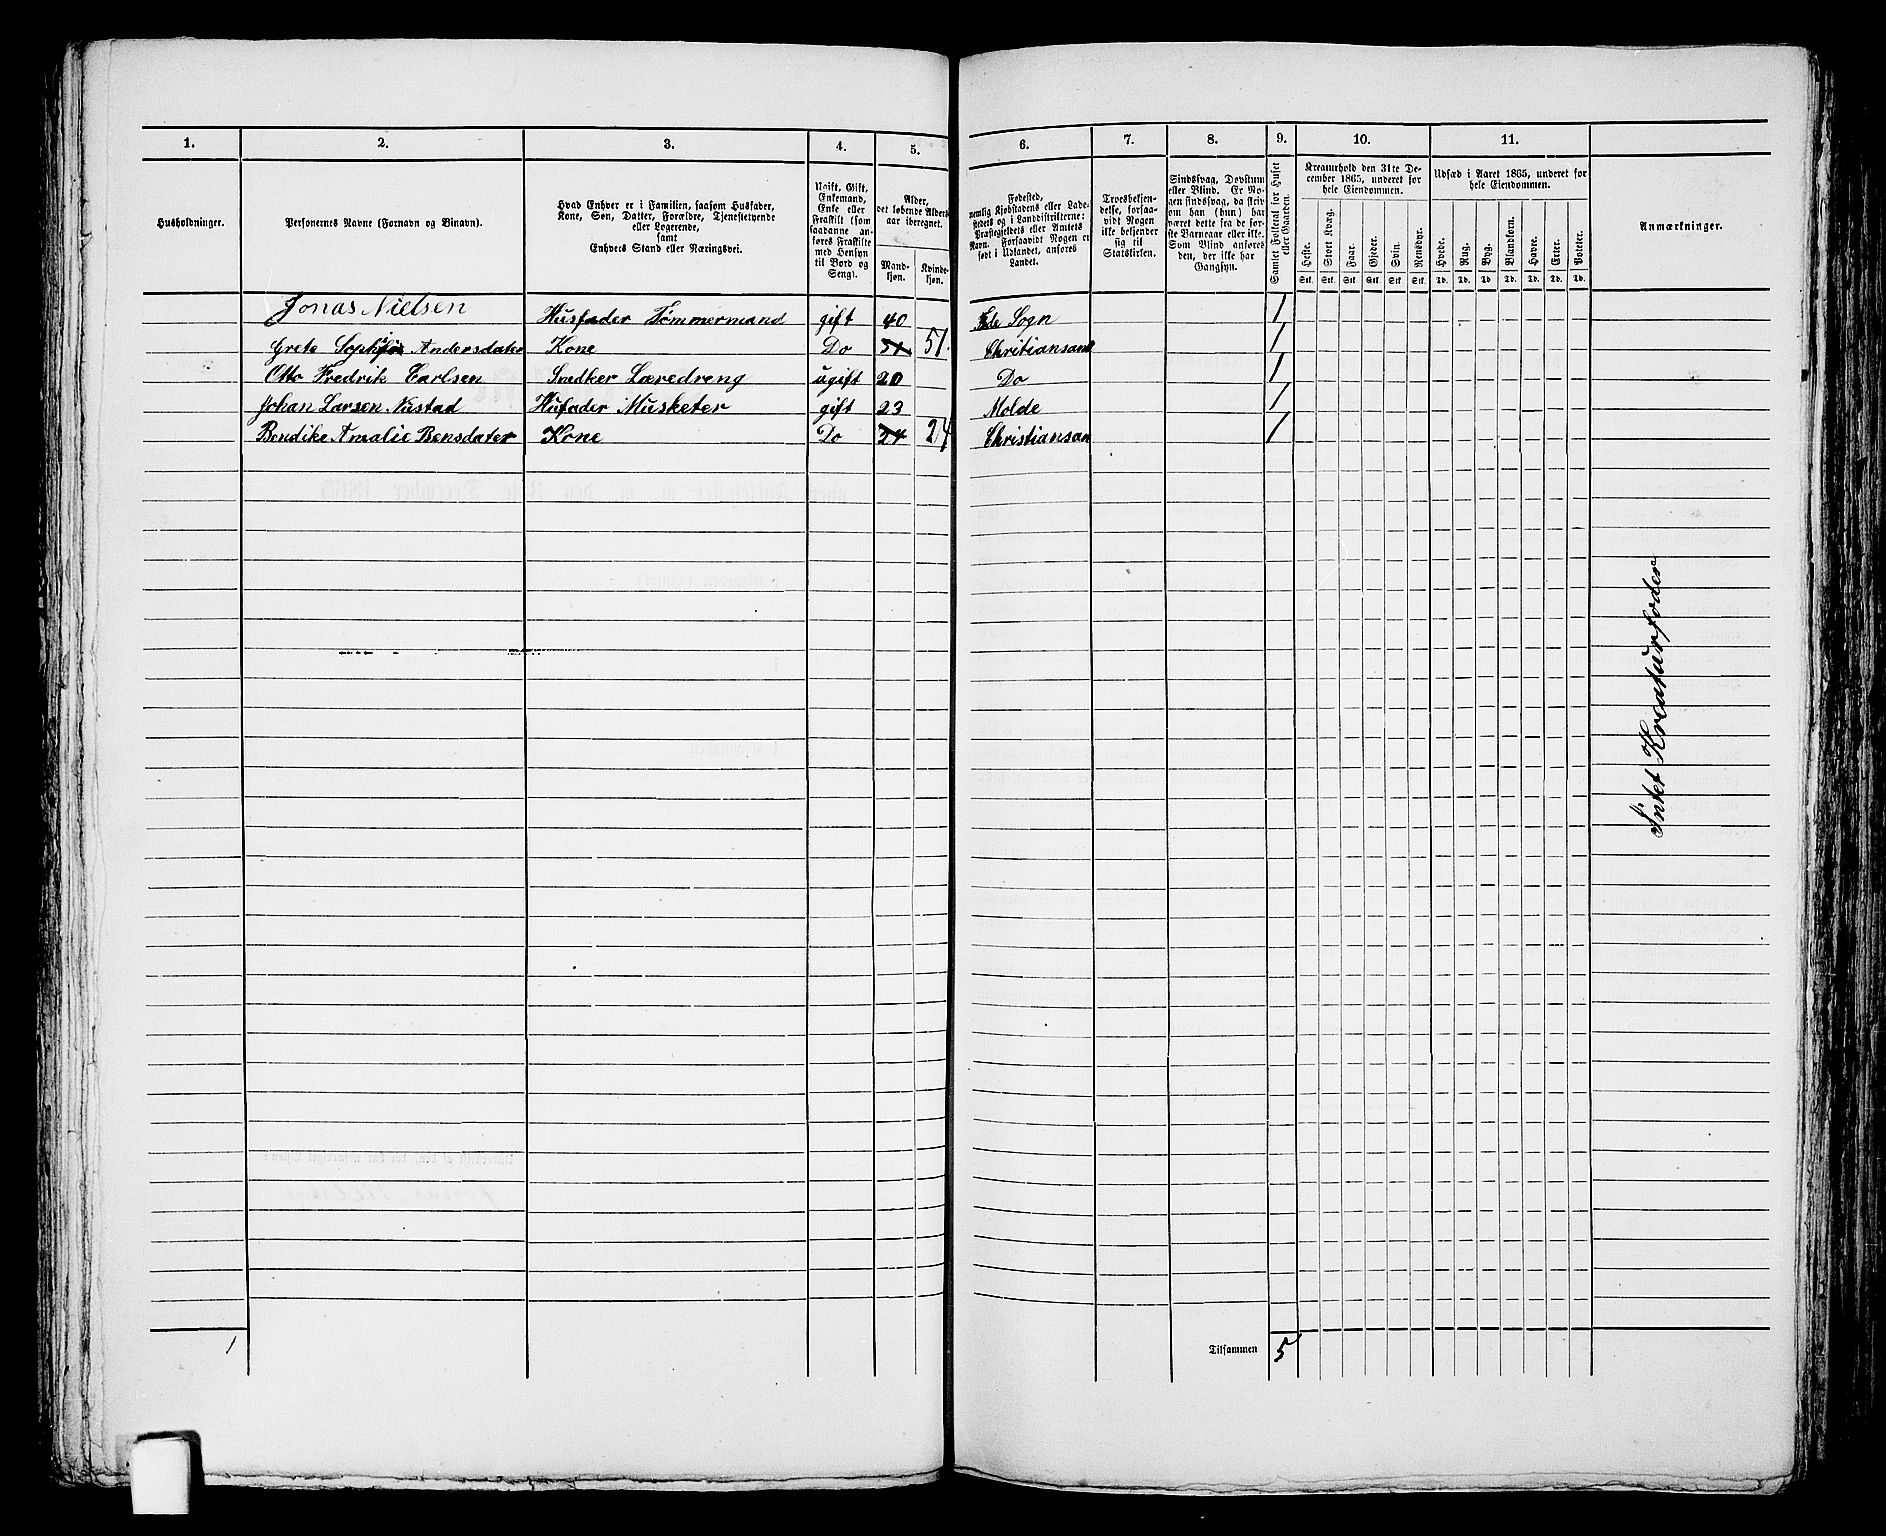 1. 2. 3. 4. 5. 6. 7. 8. 9. 10. 11.
Husholdninger.
Personernes Navne (Fornavn og Binavn).
Hvad Enhver er i Familien, saasom Husfader,
Kone, Søn, Datter, Forældre, Tjenestetyende
eller Logerende,
samt
Enhvers Stand eller Næringsvei.
Ugift, Gift,
Enkemand,
Enke eller
Fraskilt (som
saadanne an-
føres Fraskilte
med Hensyn
til Bord og
Seng).
Alder,
det løbende Alders-
aar iberegnet.
Mand-
kjøn.
Kvinde-
kjøn.
Fødested,
nemlig Kjøbstadens eller Lade-
stedets og i Landdistrikterne:
Præstegjeldets eller Amtets
Navn. Forsaavidt Nogen er
født i Udlandet, anføres
Landet.
Troesbekjen-
delse, forsaa-
vidt Nogen
ikke bekjender
sig til
Statskirken.
Sindssvag, Døvstum
eller Blind. Er No-
gen sindssvag, da skriv
om han (hun) har
været dette fra de før-
ste Barneaar eller ikke.
Som Blind anføres
den, der ikke har
Gangsyn.
Samlet Folketal for Huset
eller Gaarden.
Kreaturhold den 31te De-
cember 1865, underet for
hele Eiendommen.
Heste. Stort Kvæg. Faar. Gjeder. Svin. Rensdyr.
Stk. Stk. Stk. Stk. Stk. Stk.
Udsæd i Aaret 1865, underet for
hele Eiendommen.
Hvede. Rug. Byg. Blandkorn. Havre. Erter. Poteter.
Td. Td. Td. Td. Td. Td. Td.
Anmærkninger.
Jonas Nielsen Husfader Tømmermand gift 40 Sogn 1
Grete Sophie Andersdater Kone Do 51 51 Chritiansand 1
Otto Fredrik Carlsen Snedker Læredreng ugift 20 Do 1
Johan Larsen Nustad Husfader Musketer gift 23 Molde 1
Bendike Amalie Bensdater Kone Do 24 24 Christiansan 1
Intet Kreaturfoder
1 Tilsammen 5